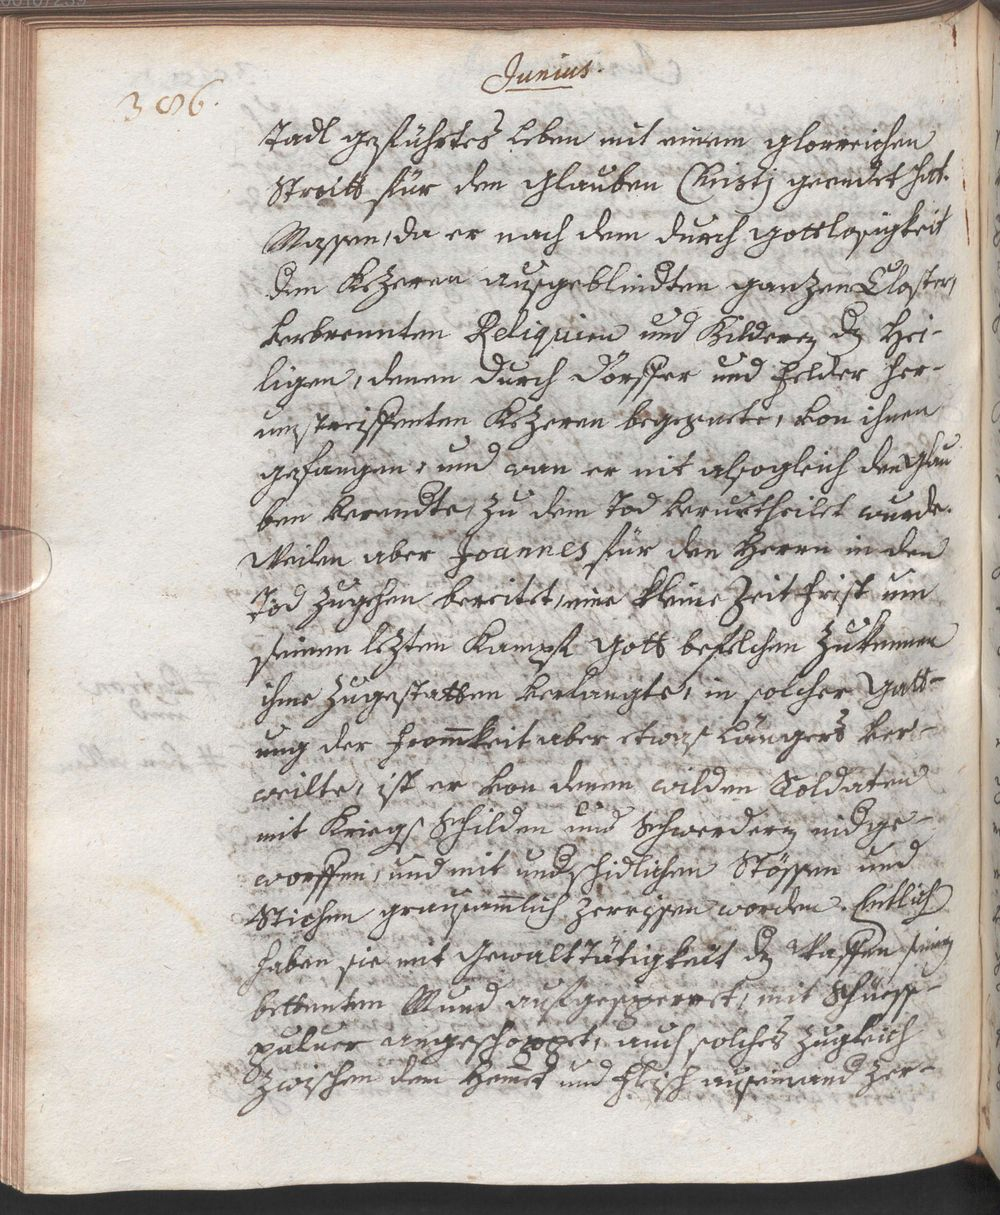 Junius.
386.
Tadl geführtes Leben mit einem glorreichen
Streitt für den Glauben Christj geendet hatt.
Massen, da er nach dem durch Gottlosigkeit
den Kezeren ausgeblindten ganzen Closter,
verbrennten Reliquien und Bilderen der Hei-
ligen, denen durch Dörffer und Felder her-
umstreiffenten Kezeren begegnete, von ihnen
gefangen, und wan er nit alsogleich den Glau
ben verendte, zu dem Tod verurtheilet wurde.
Weilen aber Joannes für den Herrn in den
Tod zugehen bereitet, eine kleine Zeit Frist um
seinen lezten Kampf Gott befelchen zukennen
ihme zugestatten verlangte, in solcher Gatt-
ung der Frommkeit aber etwas längers ver-
weilte, ist er von denen wilden Soldaten
mit Kriegs Schilden und Schwerderen nidge-
worffen, und mit undschidlichen Stössen und
Stichen grausammlich zerrissen worden. Entlich
haben sie mit Gewaltthätigkeit der Waffen seinen
bettenten Mund aufgesperret, mit Schuess-
puluer angeschoppet, auch solches zugleich
zwischen dem Hemmet und Fleisch auseinand zer-